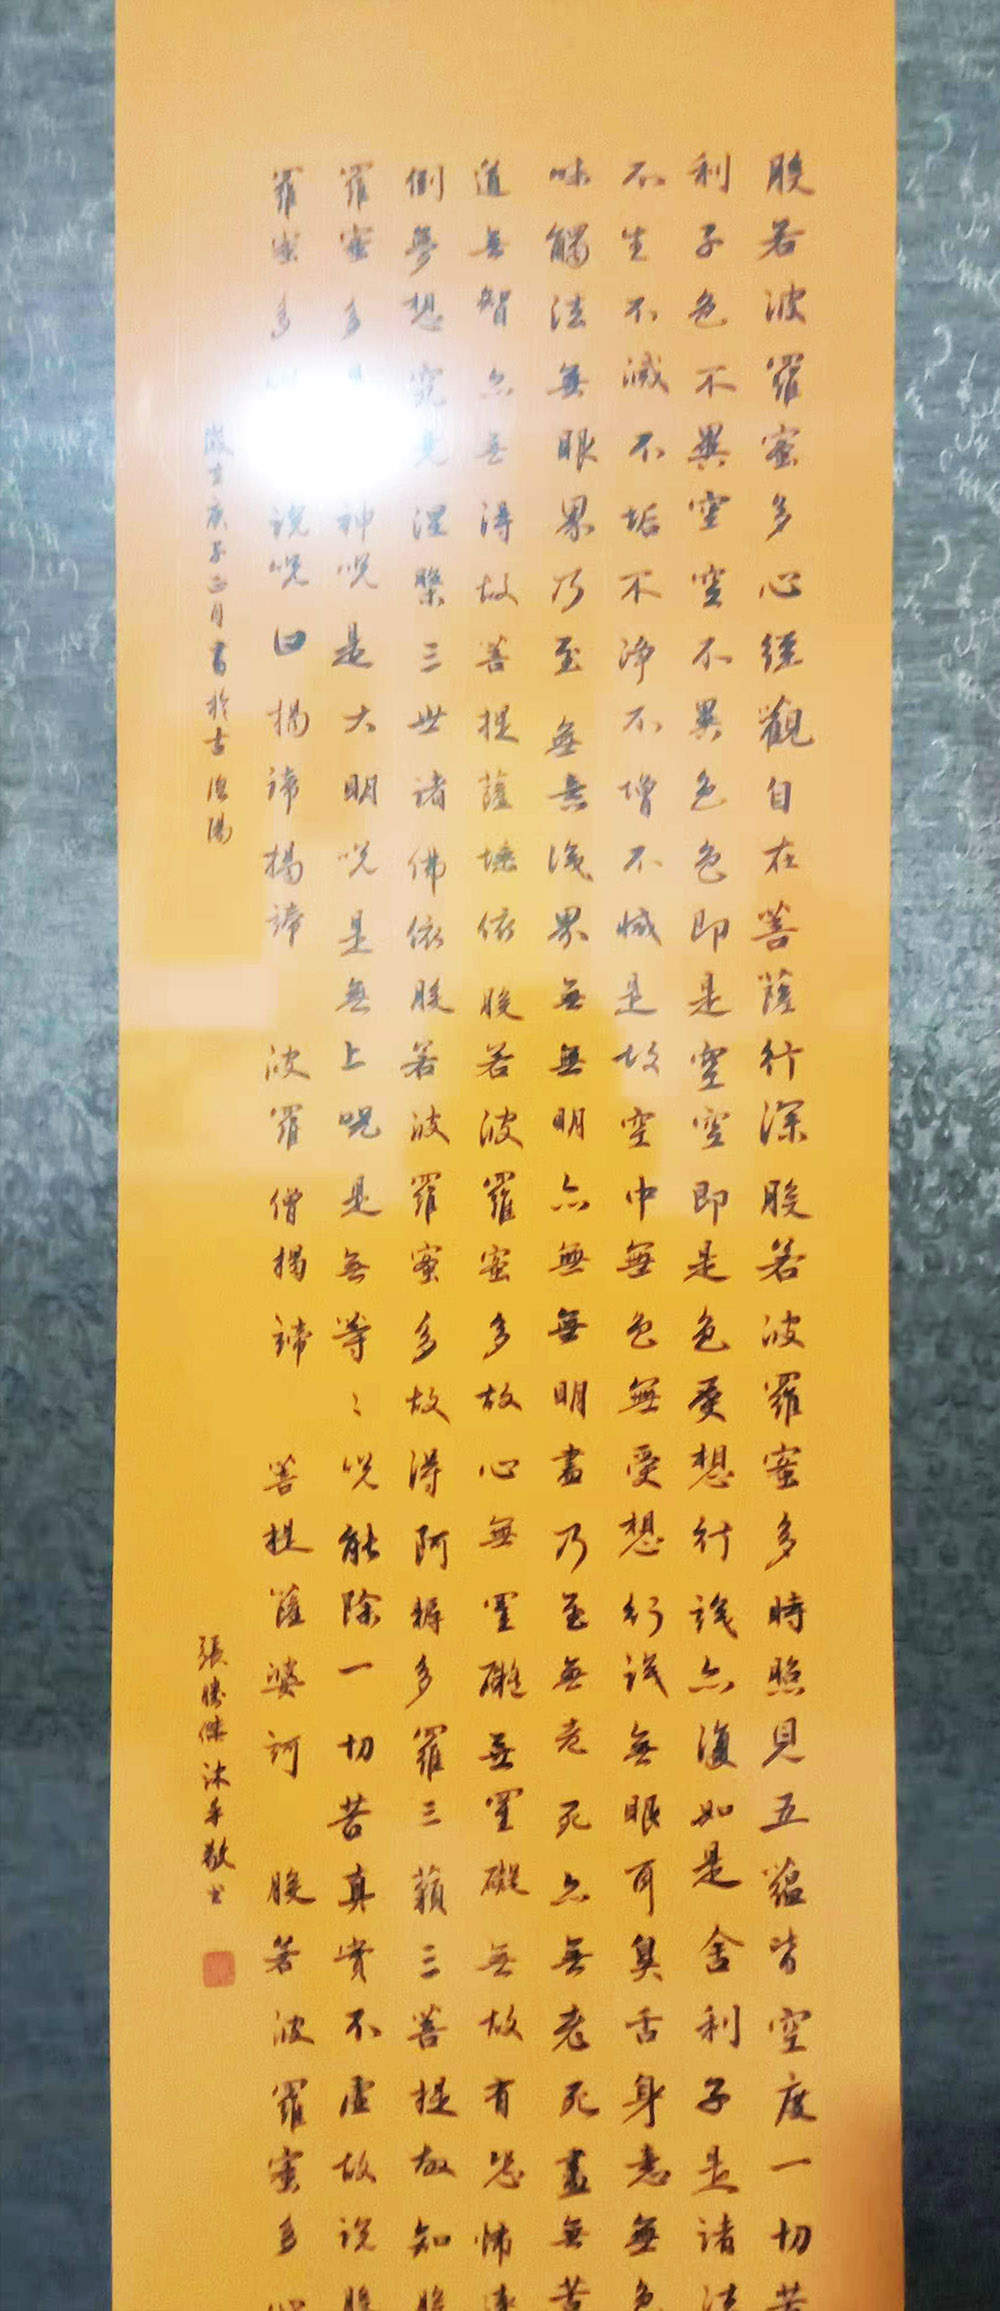 般若波羅蜜多心經觀自在菩薩行深般若波羅蜜多時照見五蘊皆空度一切苦
利子色不異空空不異色色即是空空即是色受想行識亦復如是舍利子是諸法
不生不滅不垢不淨不增不減是故空中無色無受想行識無眼耳鼻舌身意無色
味觸法無眼界乃至無無識界無無明亦無無明盡乃至無老死亦無老死盡無苦
道無智亦無得故菩提薩埵依般若波羅蜜多故心無罣礙無罣礙無故有恐怖遠
倒夢想究竟涅槃三世諸佛依般若波羅蜜多故得阿耨多羅三藐三菩提故知般
羅蜜多是神呪是大明呪是無上呪是無等々呪能除一切苦真實不虛故說般
羅蜜多說呪曰揭諦揭諦 波羅僧揭諦 菩提薩婆訶 般若波羅蜜多心
歲在庚子正月書於古洛陽
張勝傑沐手敬書